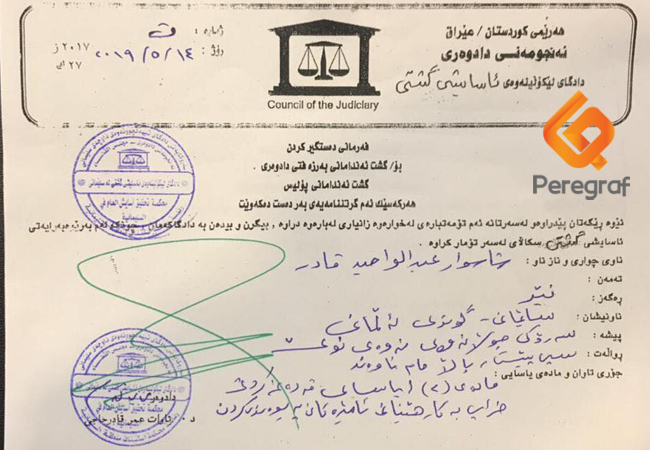 هەرێمی کوردستان / عێراق
ئەنجومەنی دادوەری
دادگای لێکۆڵینەوەی ئاسایشی گشتی
Council of the Judiciary
ژمارە : ق
ڕۆژ : ٢٠١٩/٥/١٤
٢٠١٧ ز
٢٧ ك
Peregraf
فەرمانی دەستگیر کردن
بۆ/ گشت ئەندامانی بەرزەفتی دادوەری .
گشت ئەندامانی پۆلیس
هەرکەسێک ئەم گرتننامەیەی بەر دەست دەکەوێت
ئێوە ڕێگەتان پێدراوە لەسەرتانە ئەم تۆمەتبارەی لەخوارەوە زانیاری لەبارەوە دراوە ، بیگرن و بیدەن بە دادگاکەمان ، چونکە ئەم بەڕێوەبەرایەتی
ئاسایشی گشتی سکاڵای لەسەر تۆمار کراوە .
ناوی چواری و ناز ناو : شاسوار عبدالواحید قادر
تەمەن :
ڕەگەز : نێر
ناونیشان : سلێمانی - گوندی ئەڵمانی
پیشە : سەرۆکی جوڵانەوەی نەوەی نوێ
ڕواڵەت :
جۆری تاوان و مادەی یاسایی : مادەی (٢) لە یاسای قەدەغەکردنی
خراپ بەکارهێنانی ئامێرەکانی پەیوەندیکردن
دادوەری
محكمة تحقيق اسايش العام في
السليمانية